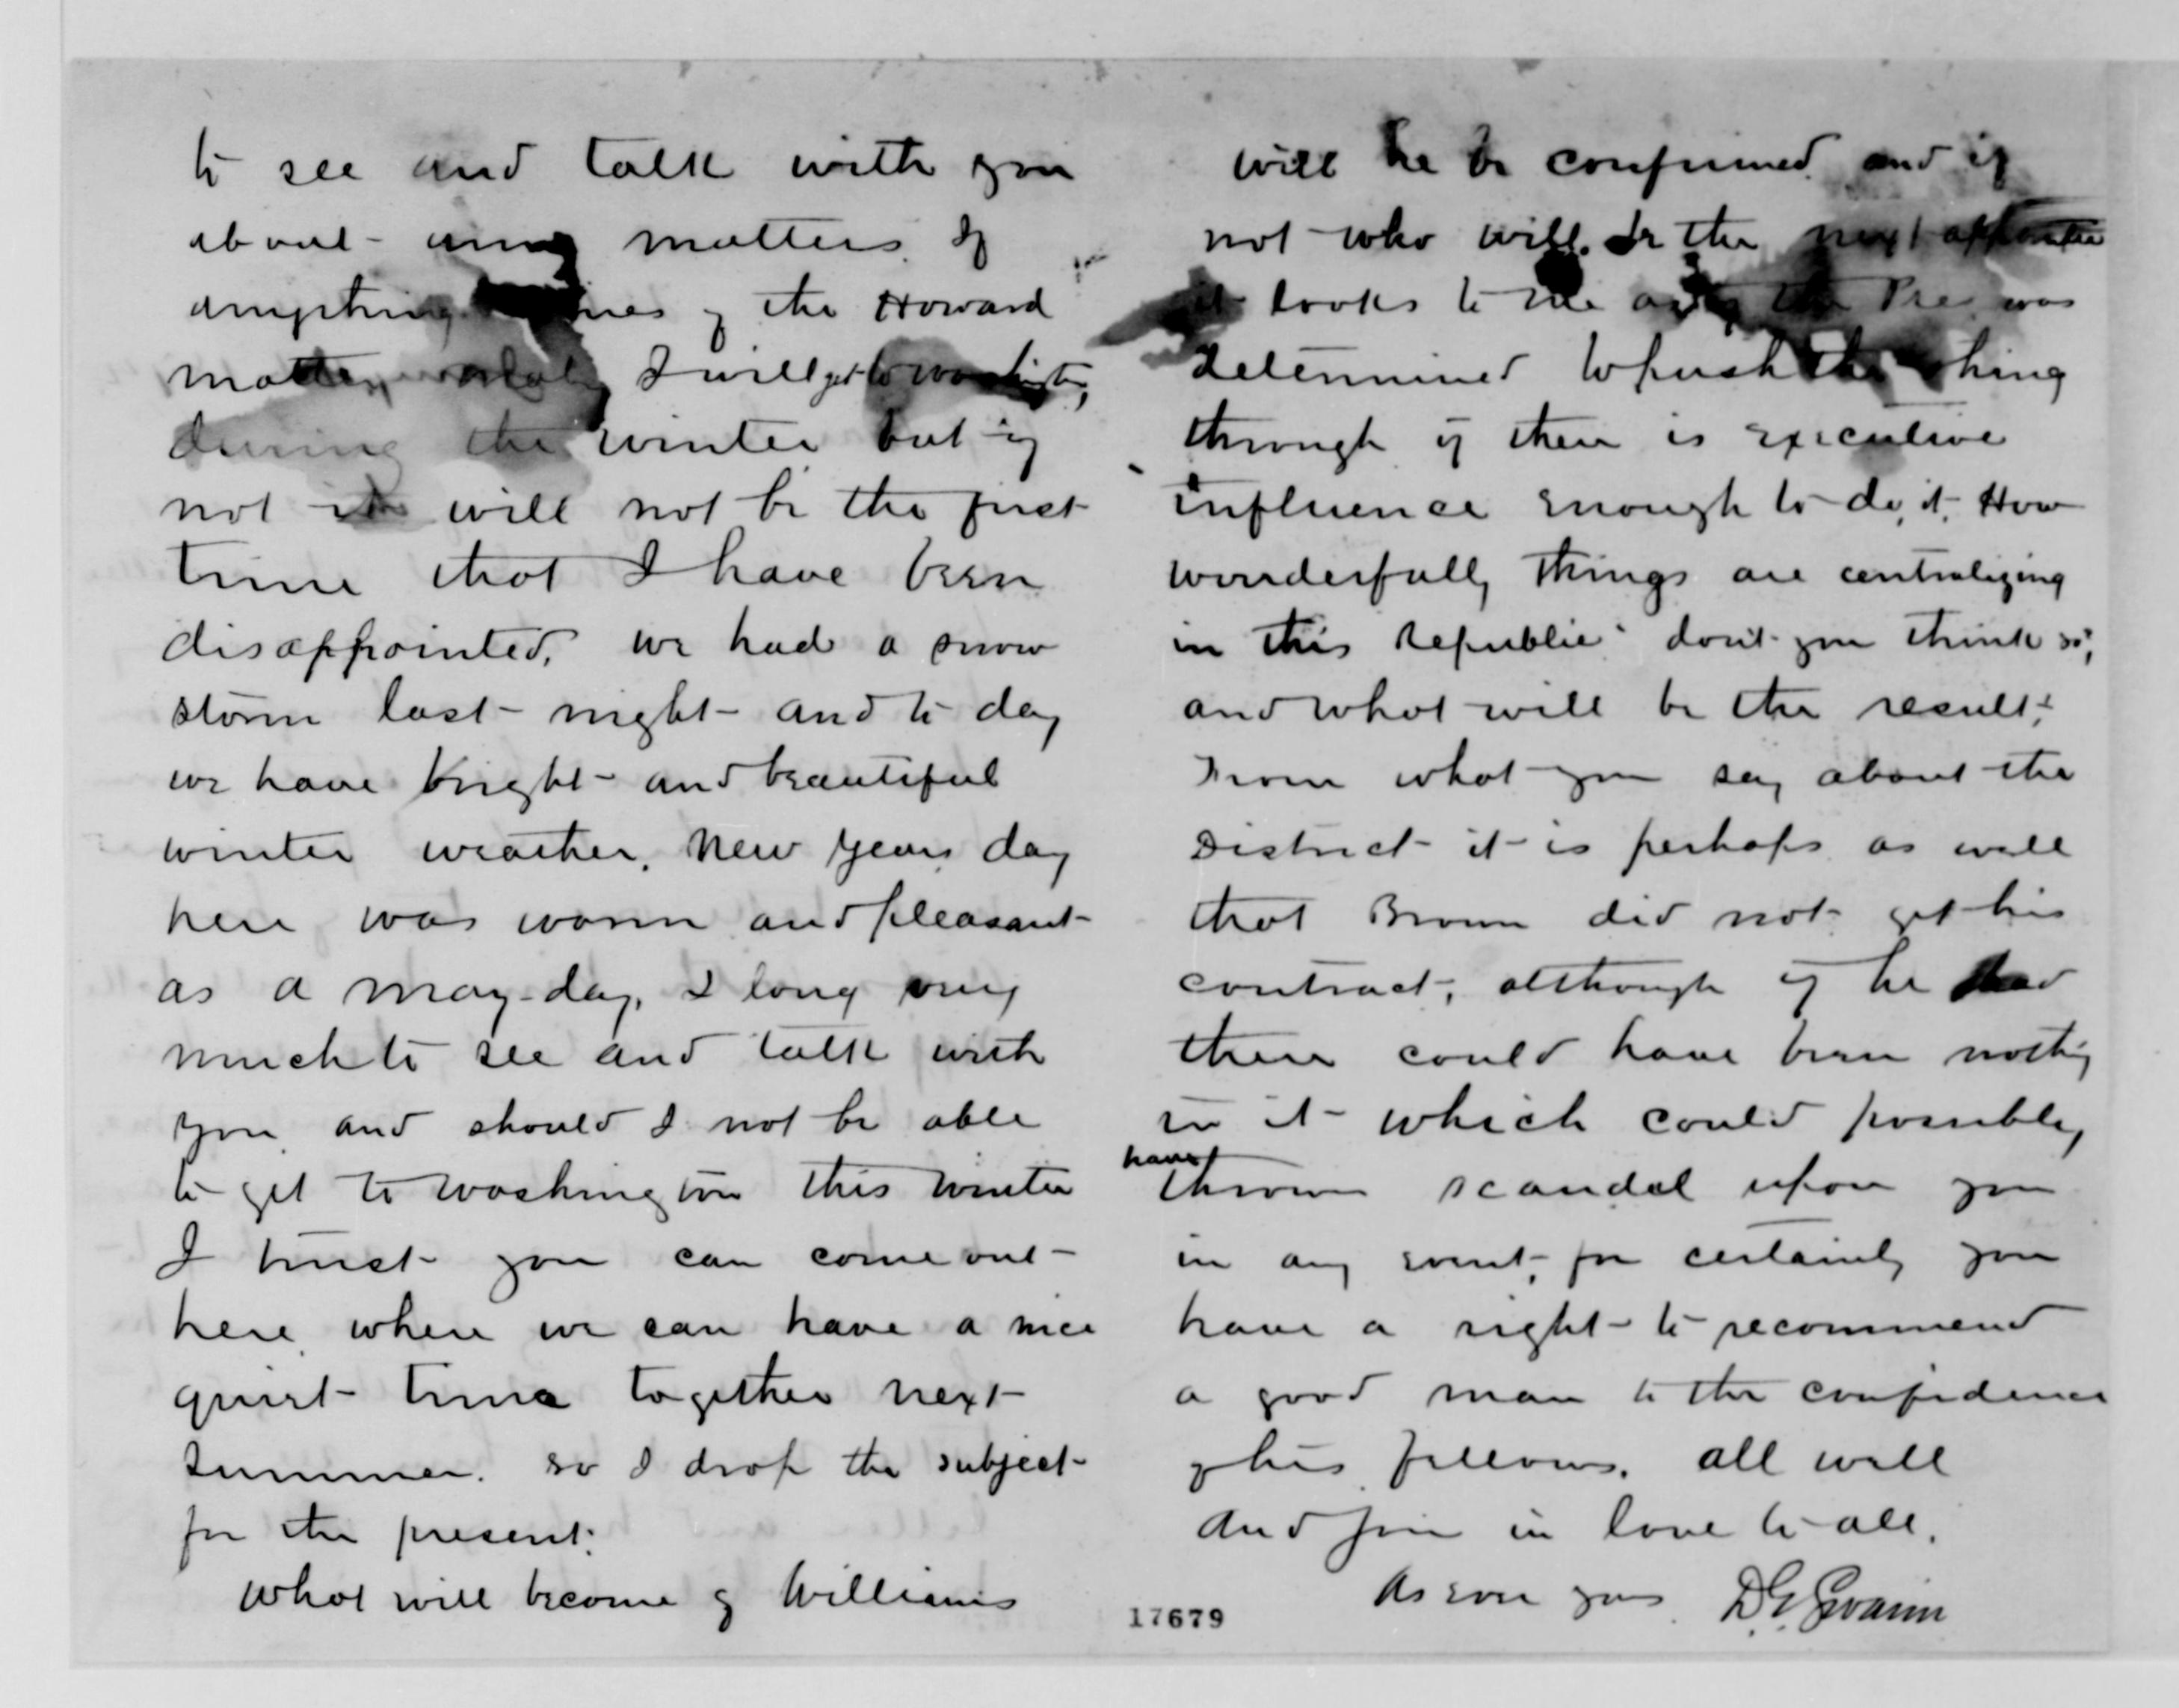 to see and talk with you
about many matters. If
anything comes of the Howard
matter I will get to Washington
during the winter but if
not it will not be the first
time that I have been
disappointed. we had a snow
storm last night and to day
we have bright and beautiful
winter weather. New Years day
here was warm and pleasant
as a may-day. I long very
much to see and talk with
you and should I not be able
to get to Washington this winter
I trust you can come out
here where we can have a nice
quiet time together next
summer. so I drop the subject
for the present.
What will become of Williams
will he be confirmed and if
not who will be the next appointee
it looks to me as if the Pres was
determined to push the thing
through if there is executive
influence enough to do it. How
wonderfully things are centralizing
in this Republic. don't you think so,
and what will be the result?
From what you say about the
District it is perhaps as well
that Brown did not get his
contract, although if he had
there could have been nothing
in it which could possibly
have
thrown scandal upon you
in any event, for certainly you
have a right to recommend
a good man to the confidence
of his fellows. all well
and join in love to all.
As ever yours D. G. Swaim
17679